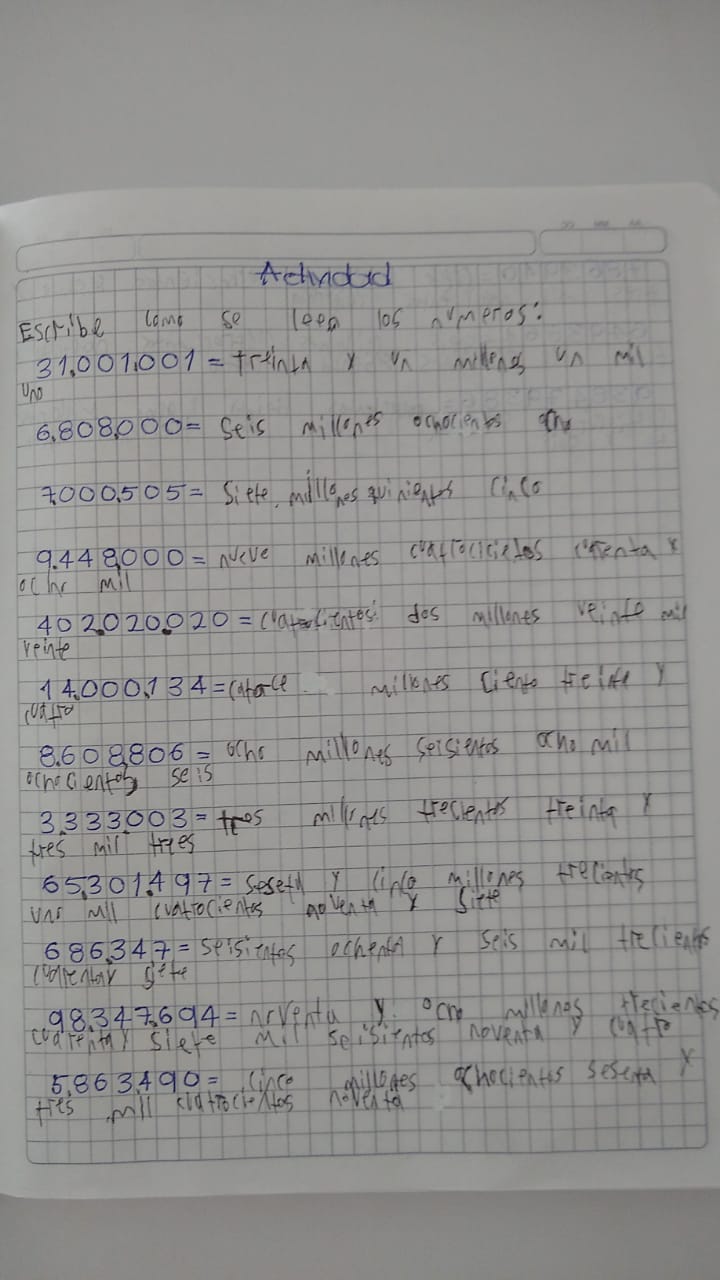 Actividad
Escribe como se leen los numeros:
31,001,001 = treinta y un millones un mil
uno
6,808,000 = Seis millones ochocientos ocho
7,000,505 = Siete millones quinientos cinco
9,448,000 = nueve millones cuatrocicietos cuarenta y
ocho mil
402,020,020 = cuatrocientos dos millones veinte mil
veinte
14,000,134 = catorce millones ciento treinta y
cuatro
8,608,806 = ocho millones seisientos ocho mil
ochocientos seis
3,333,003 = tres millones trecientos treinta y
tres mil tres
65,301,497 = sesenta y cinco millones trecientos
uno mil cuatrocientos noventa y siete
686,347 = seisientos ochenta y seis mil trecientos
cuarenta y siete
98,347,694 = noventa y ocho millones trecientos
cuarenta y siete mil seisientos noventa y cuatro
5,863,490 = cinco millones ochocientos sesenta y
tres mil cuatrocientos noventa